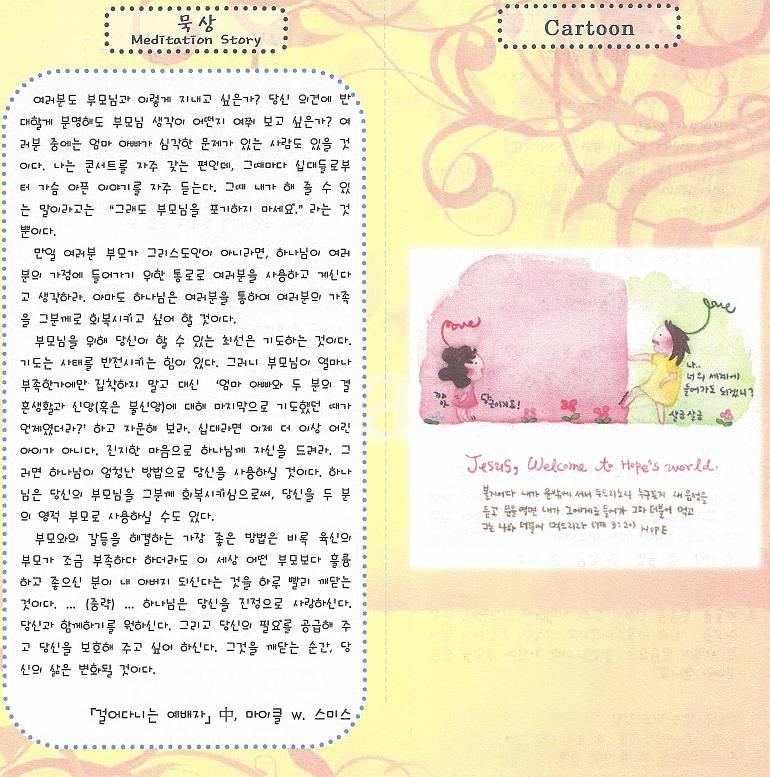 묵상
Meditation Story
여러분도 부모님과 이렇게 지내고 싶은가? 당신 의견에 반
대할게 분명해도 부모님 생각이 어떤지 여쭤 보고 싶은가? 여
러분 중에는 엄마 아빠가 심각한 문제가 있는 사람도 있을 것
이다. 나는 콘서트를 자주 갖는 편인데, 그때마다 십대들로부
터 가슴 아픈 이야기를 자주 듣는다. 그때 내가 해 줄 수 있
는 말이라고는 "그래도 부모님을 포기하지 마세요." 라는 것
뿐이다.
만일 여러분 부모가 그리스도인이 아니라면, 하나님이 여러
분의 가정에 들어가기 위한 통로로 여러분을 사용하고 계신다
고 생각하라. 아마도 하나님은 여러분을 통하여 여러분의 가족
을 그분께로 회복시키고 싶어 할 것이다.
부모님을 위해 당신이 할 수 있는 최선은 기도하는 것이다.
기도는 사태를 반전시키는 힘이 있다. 그러니 부모님이 얼마나
부족한가에만 집착하지 말고 대신 '엄마 아빠와 두 분의 결
혼생활과 신앙(혹은 불신앙)에 대해 마지막으로 기도했던 때가
언제였더라?' 하고 자문해 보라. 십대라면 이제 더 이상 어린
아이가 아니다. 진지한 마음으로 하나님께 자신을 드려라. 그
러면 하나님이 엄청난 방법으로 당신을 사용하실 것이다. 하나
님은 당신의 부모님을 그분께 회복시키심으로써, 당신을 두 분
의 영적 부모로 사용하실 수도 있다.
부모와의 갈등을 해결하는 가장 좋은 방법은 비록 육신의
부모가 조금 부족하다 하더라도 이 세상 어떤 부모보다 훌륭
하고 좋으신 분이 내 아버지 되신다는 것을 하루 빨리 깨닫는
것이다. ... (중략) ... 하나님은 당신을 진정으로 사랑하신다.
당신과 함께하기를 원하신다. 그리고 당신의 필요를 공급해 주
고 당신을 보호해 주고 싶어 하신다. 그것을 깨닫는 순간, 당
신의 삶은 변화될 것이다.
『걸어다니는 예배자』 中, 마이클 w. 스미스
Cartoon
love
love
나..
너의 세계에
들어가도 되겠니?
당근이지요!
살금살금
Jesus, Welcome to Hope's world.
볼지어다 내가 문밖에 서서 두드리노니 누구든지 내 음성을
듣고 문을 열면 내가 그에게로 들어가 그와 더불어 먹고
그는 나와 더불어 먹으리라 (계 3:20) HOPE